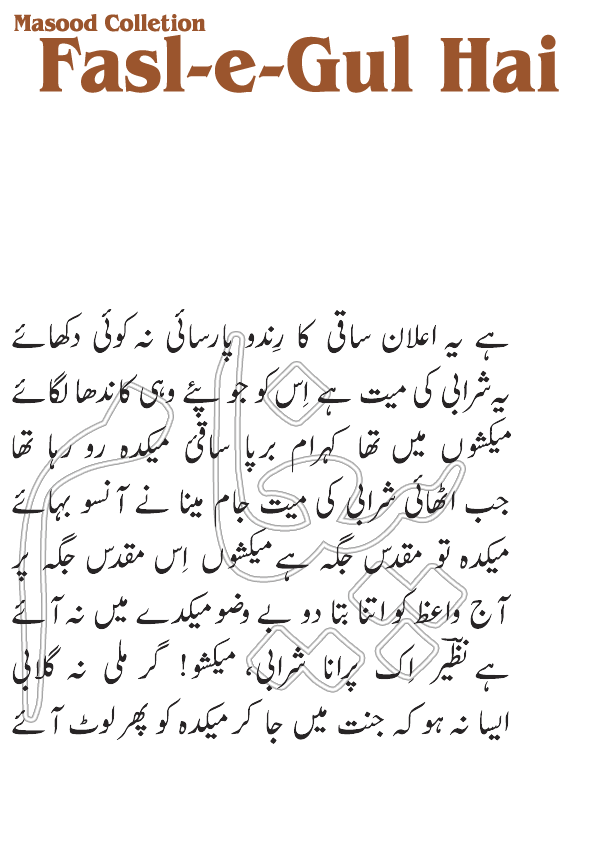 Masood Colletion
Fasl-e-Gul Hai
ہے یہ اعلان ساقی کا رِندو پارسائی نہ کوئی دکھائے
یہ شرابی کی میت ہے اِس کو جو پئے وہی کاندھا لگائے
میکشوں میں تھا کہرام برپا ساقئ میکدہ رو رہا تھا
جب اٹھائی شرابی کی میت جام مینا نے آنسو بہائے
میکدہ تو مقدس جگہ ہے میکشوں اِس مقدس جگہ پر
آج واعظ کو اتنا بتا دو بے وضو میکدے میں نہ آئے
ہے نظیرؔ اِک پرانا شرابی، میکشو! گر ملی نہ گلابی
ایسا نہ ہو کہ جنت میں جا کر میکدہ کو پھر لوٹ آئے
پیغام